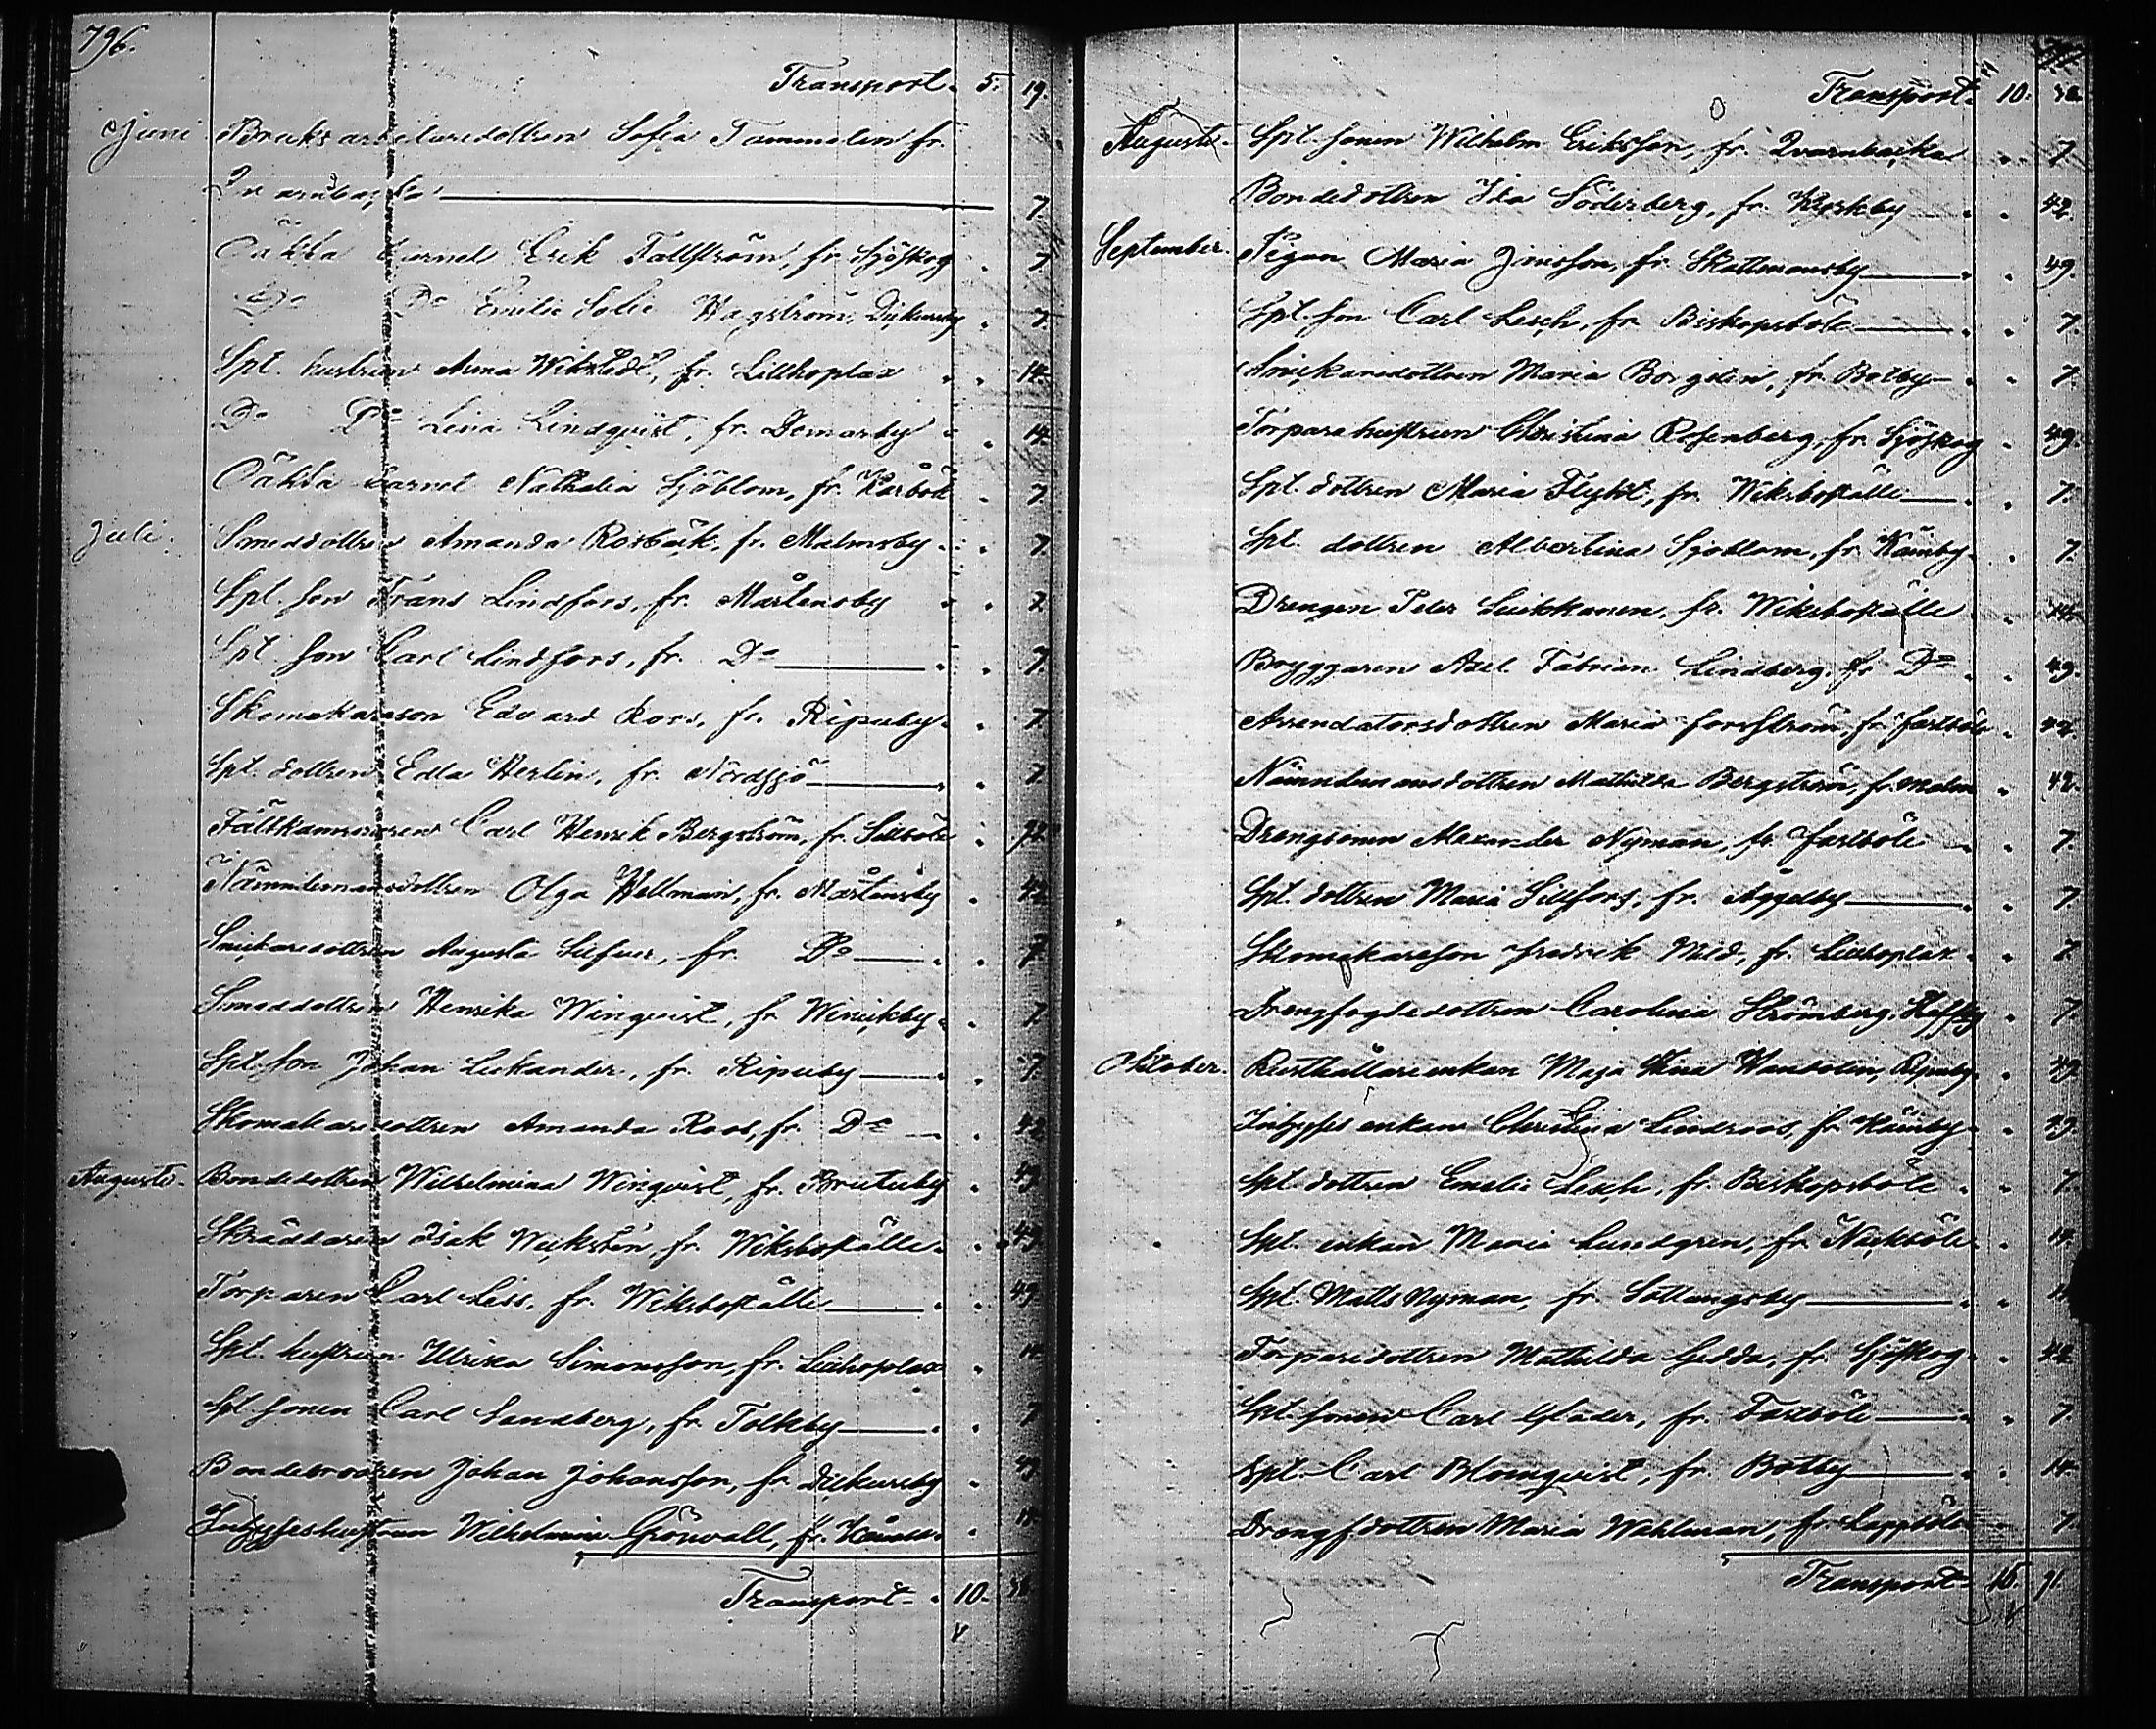 796.
Transport. 5. 19.
Juni Bruksarbetaredottren Sofia Tammelin fr.
Qvarnbacka 7.
Oäkta barnet Erik Fallström, fr. Sjöskog 7.
Do Do Emilie Sofie Hagström, Dickursby 7.
Spt. hustrun Anna Wikstedt, fr. Lillhoplax 14.
Do Do Lina Lindqvist, fr. Domarby 14.
Oäkta barnet Nathalia Sjöblom, fr. Kårböle 7.
Juli. Smeddottren Amanda Rosbäck, fr. Malmsby 7.
Spt. son Frans Lindfors, fr. Mårtensby 7.
Spt. son Carl Lindfors, fr. Do 7.
Skomakareson Edvard Roos, fr. Ripuby 7.
Spt. dottren Edla Herlin, fr. Nordsjö 7.
Fältkamreraren Carl Henrik Bergström, fr. Sillböle
Nämndemansdottren Olga Hellman, fr. Mårtensby 42
Snickaredottren Augusta Silfver, fr. Do 7
Smeddottren Henrika Winqvist, fr. Winickby 7
Spt. son Johan Lukander, fr. Ripuby 7.
Skomakaredottren Amanda Roos, fr. Do 42
Augusti. Bondedottren Wilhelmina Winqvist, fr. Brutuby 49
Skräddaren Isak Weckstén, fr. Wiksboställe 49.
Torparen Carl Liss, fr. Wiksboställe 49.
Spt. hustrun Ulrika Simonsson, fr. Lillhoplax 14
Spt. sonen Carl Sandberg, fr. Tolkby 7
Bondebrodren Johan Johansson, fr. Dickursby 49
Inhyseshustrun Wilhelmina Grönvall, fr. 14
Transport 10. 38.
797.
Transport 10. 38.
Augusti. Spt. sonen Wilhelm Eriksson, fr. Qvarnbacka 7.
Bondedottren Ida Söderberg, fr. Kyrkby 42.
September. Pigan Maria Jansson, fr. Skattmansby 49.
Spt. son Carl Lesch, fr. Biskopsböle 7.
Snickaredottren Maria Borgelin, fr. Botby 7.
Torparehustrun Christina Rosenberg, fr. Sjöskog 49.
Spt. dottren Maria Flykt, fr. Wiksboställe 7.
Spt. dottren Albertina Sjöblom, fr. Kånby 7.
Drengen Peter Luikkanen, fr. Wiksboställe 14.
Bryggaren Axel Fabrian Lindberg, fr. Do 49.
Arrendatorsdottren Maria Forsström, fr. Fastböle 42.
Nämndemansdottren Mathilda Bergström, fr. Malm 42.
Drengsonen Alexander Nyman, fr. Fastböle 7.
Spt. dottren Maria Sillfors, fr. Åggelby 7
Skomakareson Fredrik Mild, fr. Lillhoplax 7.
Drengfogdedottren Carolina Strömberg, 7.
Oktober. Rusthållareenkan Maja Stina Hansolin, Ripuby 49.
Inhyses enkan Christina Lindroos, fr. Kånby 49.
Spt. dottren Emelie Lesch, fr. Biskopsböle 7
Spt. enkan Maria Lundgren, fr. Nackböle 14.
Spt. Matts Nyman, fr. Sottungsby
Torparedottren Mathilda Gedda, fr. Sjöskog 42
Spt. sonen Carl Glader, fr. Fastböle 7.
Spt. Carl Blomqvist, fr. Botby 14.
Drengsdottren Maria Wahlman, fr. Lappböle 7.
Transport 15. 71.